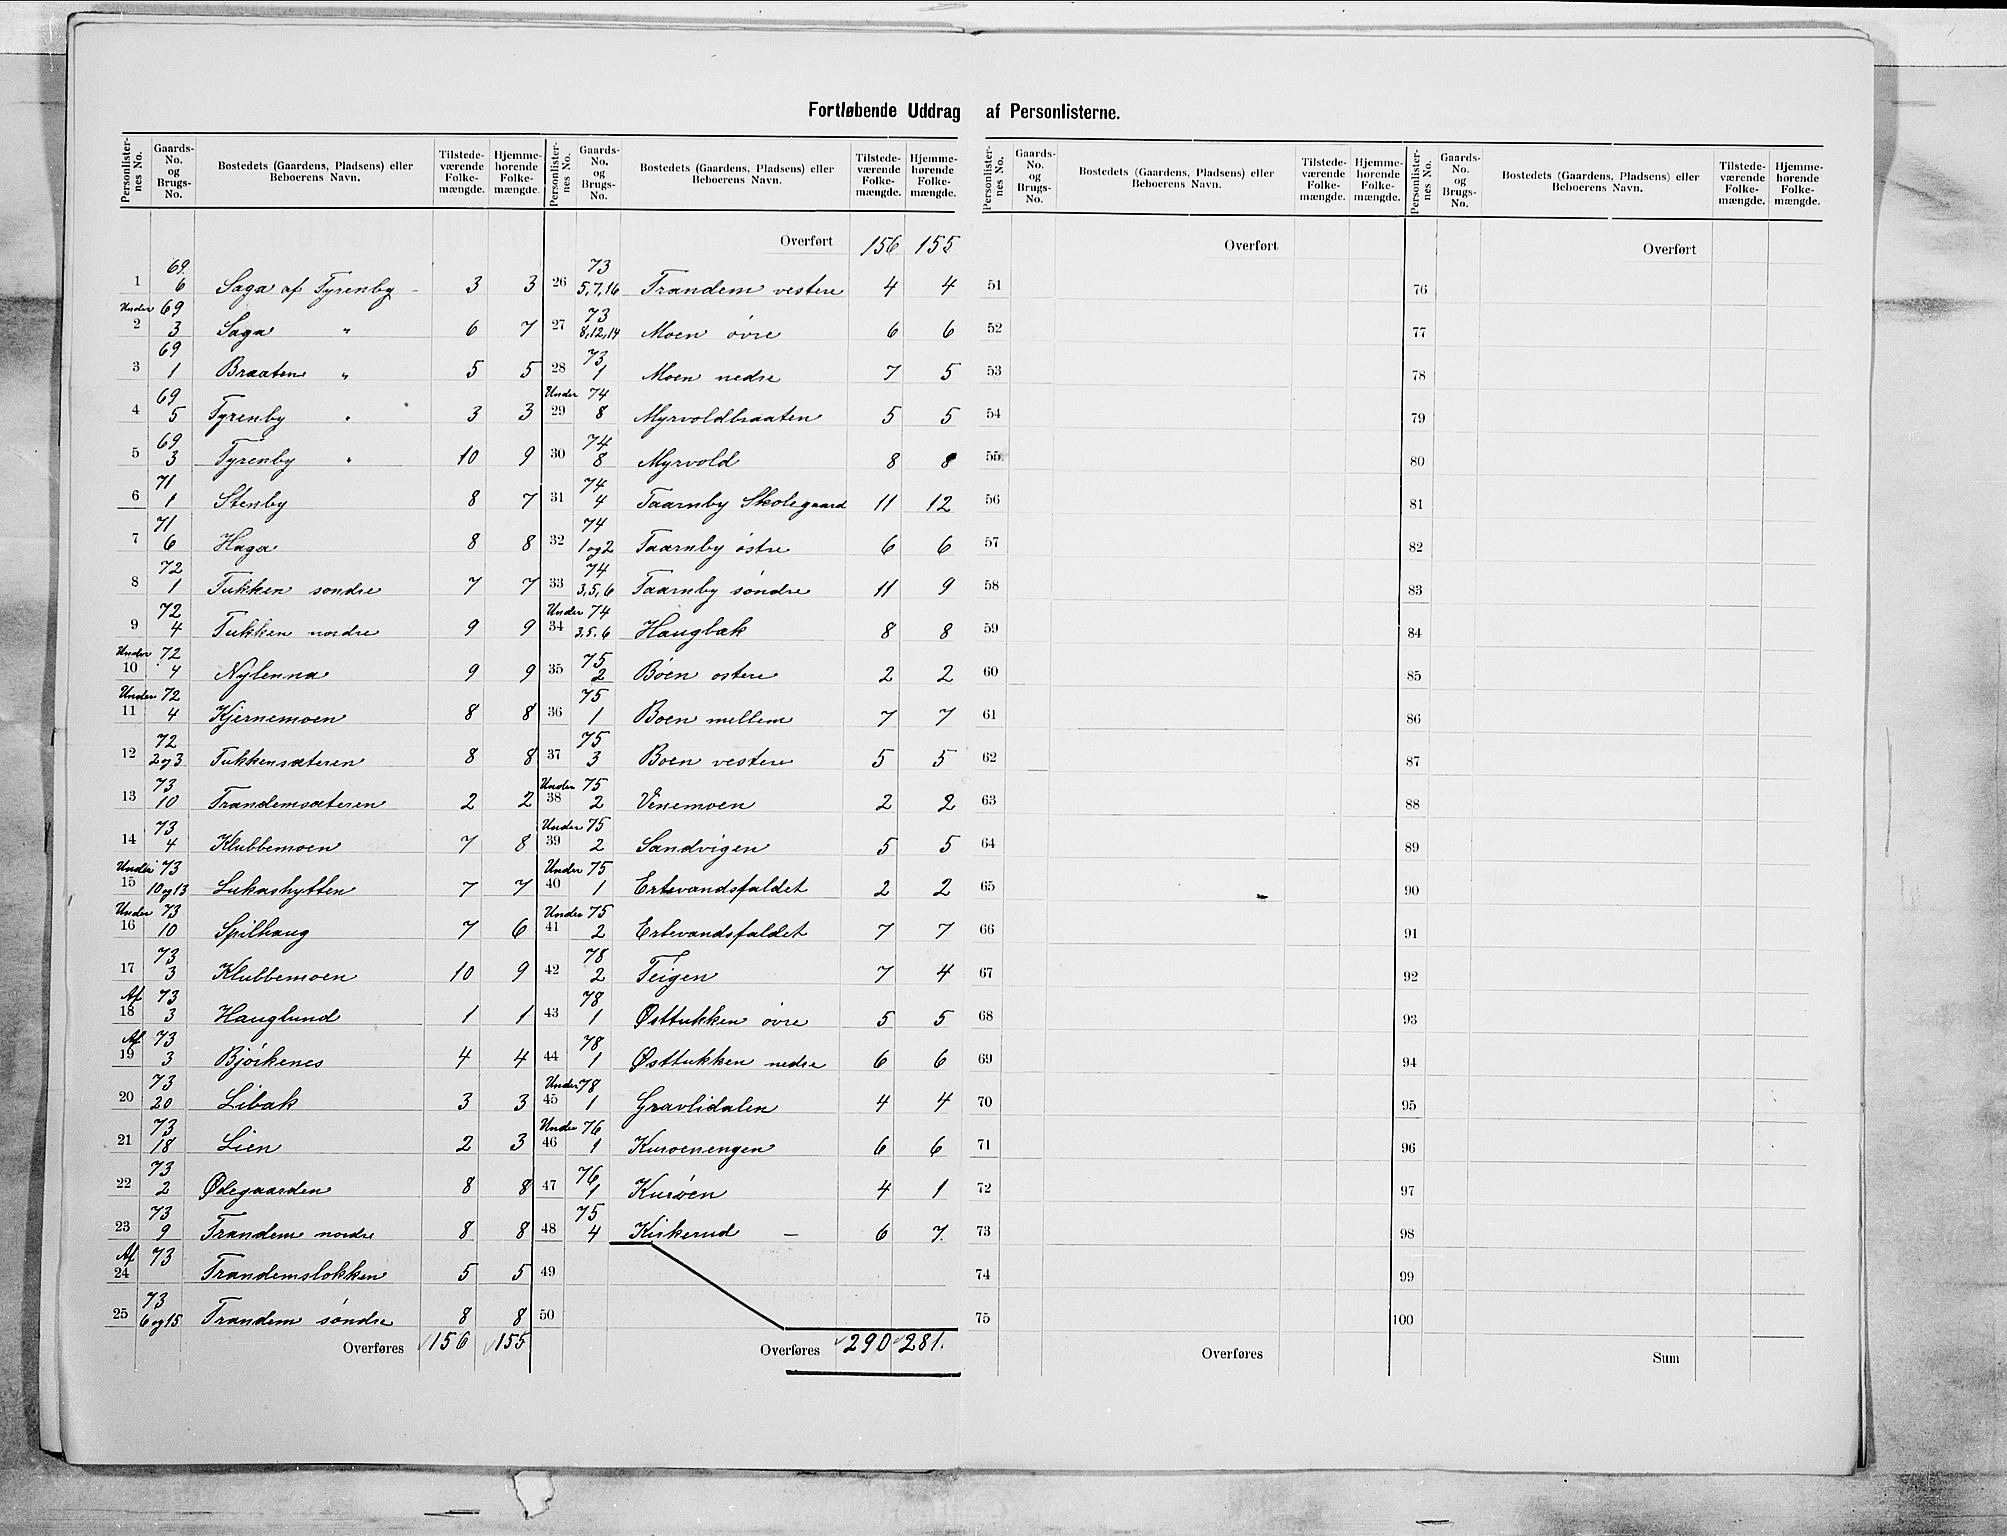 Fortløbende Uddrag af Personlisterne.
Personlister-nes No. | Gaards-No. og Brugs-No. | Bostedets (Gaardens, Pladsens) eller Beboerens Navn. | Tilstede-værende Folke-mængde. | Hjemme-hørende Folke-mængde.
1 | 69. 6 | Saga af Tyrenby - | 3 | 3
2 | Under 69 3 | Saga " | 6 | 7
3 | 69 1 | Braaten " | 5 | 5
4 | 69 5 | Tyrenby " | 3 | 3
5 | 69 3 | Tyrenby " | 10 | 9
6 | 71 1 | Stenby | 8 | 7
7 | 71 6 | Haga | 8 | 8
8 | 72 1 | Tukken søndre | 7 | 7
9 | 72 4 | Tukken nordre | 9 | 9
10 | Under 72 4 | Nylenna | 9 | 9
11 | Under 72 4 | Kjernemoen | 8 | 8
12 | 72 2 og 3 | Tukkensæteren | 8 | 8
13 | 73 10 | Trandemsæteren | 2 | 2
14 | 73 4 | Klubbemoen | 7 | 8
15 | Under 73 10 og 13 | Lukashytten | 7 | 7
16 | Under 73 10 | Spilhaug | 7 | 6
17 | 73 3 | Klubbemoen | 10 | 9
18 | Af 73 3 | Hauglund | 1 | 1
19 | Af 73 3 | Bjørkenes | 4 | 4
20 | 73 20 | Libak | 3 | 3
21 | 73 18 | Lien | 2 | 3
22 | 73 2 | Ødegaarden | 8 | 8
23 | 73 9 | Trandem nordre | 8 | 8
24 | Af 73 | Trandemsløkken | 5 | 5
25 | 73 6 og 15 | Trandem søndre | 8 | 8
Overføres | 156 | 155
Personlister-nes No. | Gaards-No. og Brugs-No. | Bostedets (Gaardens, Pladsens) eller Beboerens Navn. | Tilstede-værende Folke-mængde. | Hjemme-hørende Folke-mængde.
Overført | 156 | 155
26 | 73 5,7,16 | Trandem vestere | 4 | 4
27 | 73 8,12,14 | Moen øvre | 6 | 6
28 | 73 1 | Moen nedre | 7 | 5
29 | Under 74 8 | Myrvoldbraaten | 5 | 5
30 | 74 8 | Myrvold | 8 | 8
31 | 74 4 | Taarnby Skolegaard | 11 | 12
32 | 74 1 og 2 | Taarnby østre | 6 | 6
33 | 74 3,5,6 | Taarnby søndre | 11 | 9
34 | Under 74 3,5,6 | Haugbak | 8 | 8
35 | 75 2 | Bøen østere | 2 | 2
36 | 75 1 | Bøen mellem | 7 | 7
37 | 75 3 | Bøen vestere | 5 | 5
38 | Under 75 2 | Venemoen | 2 | 2
39 | Under 75 2 | Sandvigen | 5 | 5
40 | Under 75 1 | Ertevandsfaldet | 2 | 2
41 | Under 75 2 | Ertevandsfaldet | 7 | 7
42 | 78 2 | Teigen | 7 | 4
43 | 78 1 | Østtukken øvre | 5 | 5
44 | 78 1 | Østtukken nedre | 6 | 6
45 | Under 78 1 | Gravlidalen | 4 | 4
46 | Under 76 1 | Kurøenengen | 6 | 6
47 | 76 1 | Kurøen | 4 | 1
48 | 75 4 | Kirkerud - | 6 | 7.
49
50
Overføres | 290 | 281.
Personlister-nes No. | Gaards-No. og Brugs-No. | Bostedets (Gaardens, Pladsens) eller Beboerens Navn. | Tilstede-værende Folke-mængde. | Hjemme-hørende Folke-mængde.
Overført
51
52
53
54
55
56
57
58
59
60
61
62
63
64
65
66
67
68
69
70
71
72
73
74
75
Overføres
Personlister-nes No. | Gaards-No. og Brugs-No. | Bostedets (Gaardens, Pladsens) eller Beboerens Navn. | Tilstede-værende Folke-mængde. | Hjemme-hørende Folke-mængde.
Overført
76
77
78
79
80
81
82
83
84
85
86
87
88
89
90
91
92
93
94
95
96
97
98
99
100
Sum